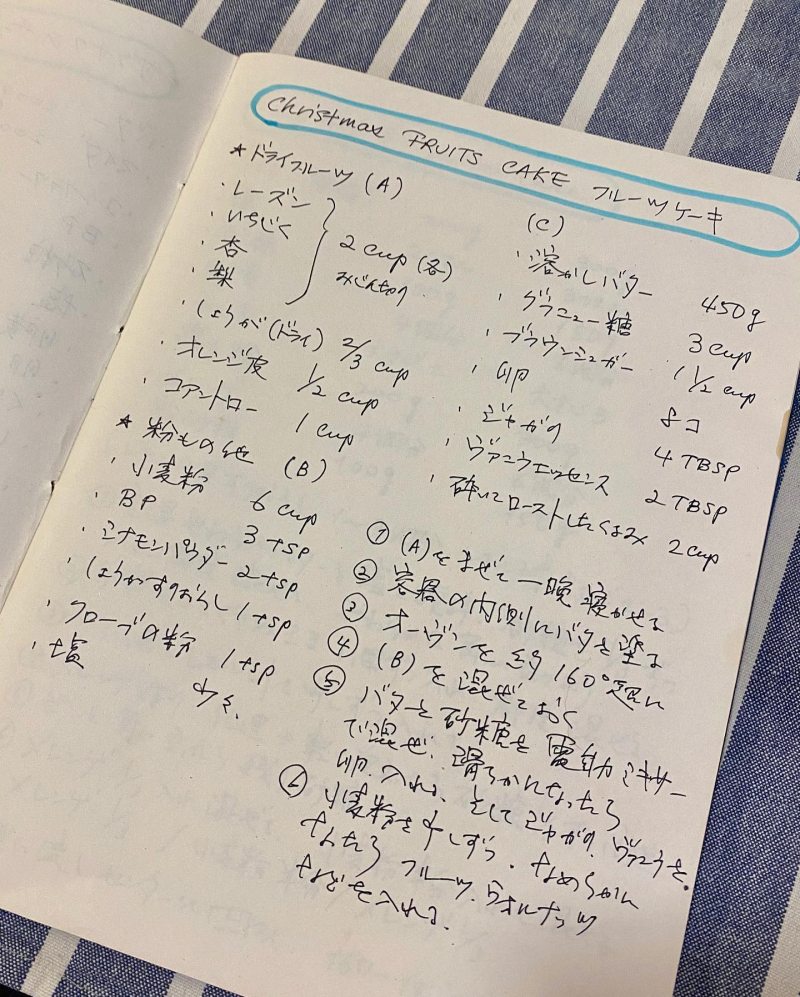 Christmas FRUITS CAKE フルーツケーキ
★ドライフルーツ (A)
・レーズン
・いちじく
・杏
・梨
2 cup (各)
みじん切り
・しょうが(ドライ) 2/3 cup
・オレンジ皮 1/2 cup
・コアントロー 1 cup
★ 粉もの他 (B)
・小麦粉 6 cup
・BP 3 tsp
・シナモンパウダー 2 tsp
・しょうがすりおろし 1 tsp
・クローブの粉 1 tsp
・塩 少々
(C)
・溶かしバター 450g
・グラニュー糖 3 cup
・ブラウンシュガー 1 1/2 cup
・卵 8コ
・ジャガリ 4 TBSP
・ヴァニラエッセンス 2 TBSP
・砕いてローストしたくるみ 2 cup
① (A)をまぜて一晩寝かせる
② 容器の内側にバタを塗る
③ オーヴンを約160°超に
④ (B)を混ぜておく
⑤ バタと砂糖を電動ミキサー
で混ぜ、滑らかになったら
卵、入れる、そしてジャガリ、ヴァニラを。
⑥ 小麦粉を少しずつ、なめらかに
なったら フルーツ、ウォルナッツ
などを入れる。